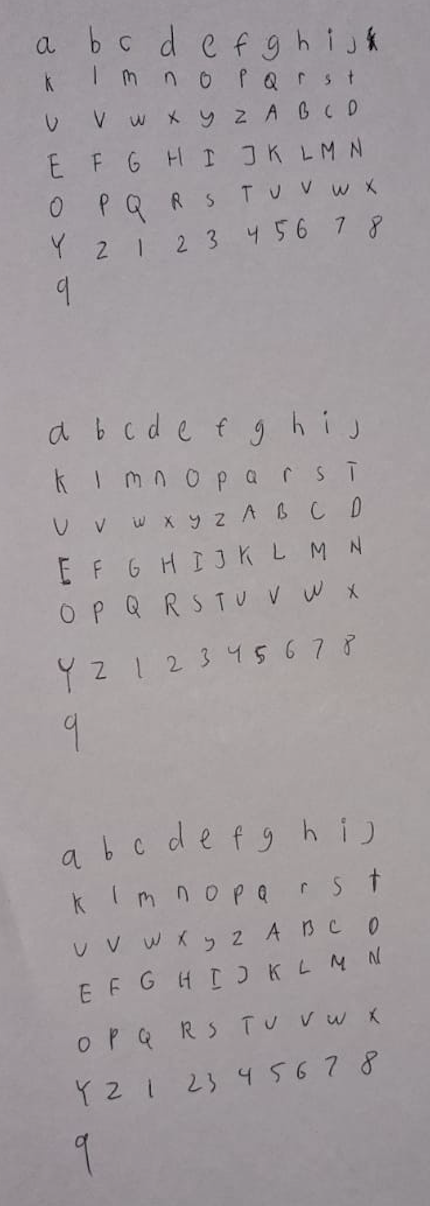 a b c d e f g h i j k
k l m n o p q r s t
u v w x y z A B C D
E F G H I J K L M N
O P Q R S T U V W X
Y Z 1 2 3 4 5 6 7 8
9
a b c d e f g h i j
k l m n o p q r s T
u v w x y z A B C D
E F G H I J K L M N
O P Q R S T U V W X
Y Z 1 2 3 4 5 6 7 8
9
a b c d e f g h i j
k l m n o p q r s t
u v w x y z A B C D
E F G H I J K L M N
O P Q R S T U V W X
Y Z 1 2 3 4 5 6 7 8
9